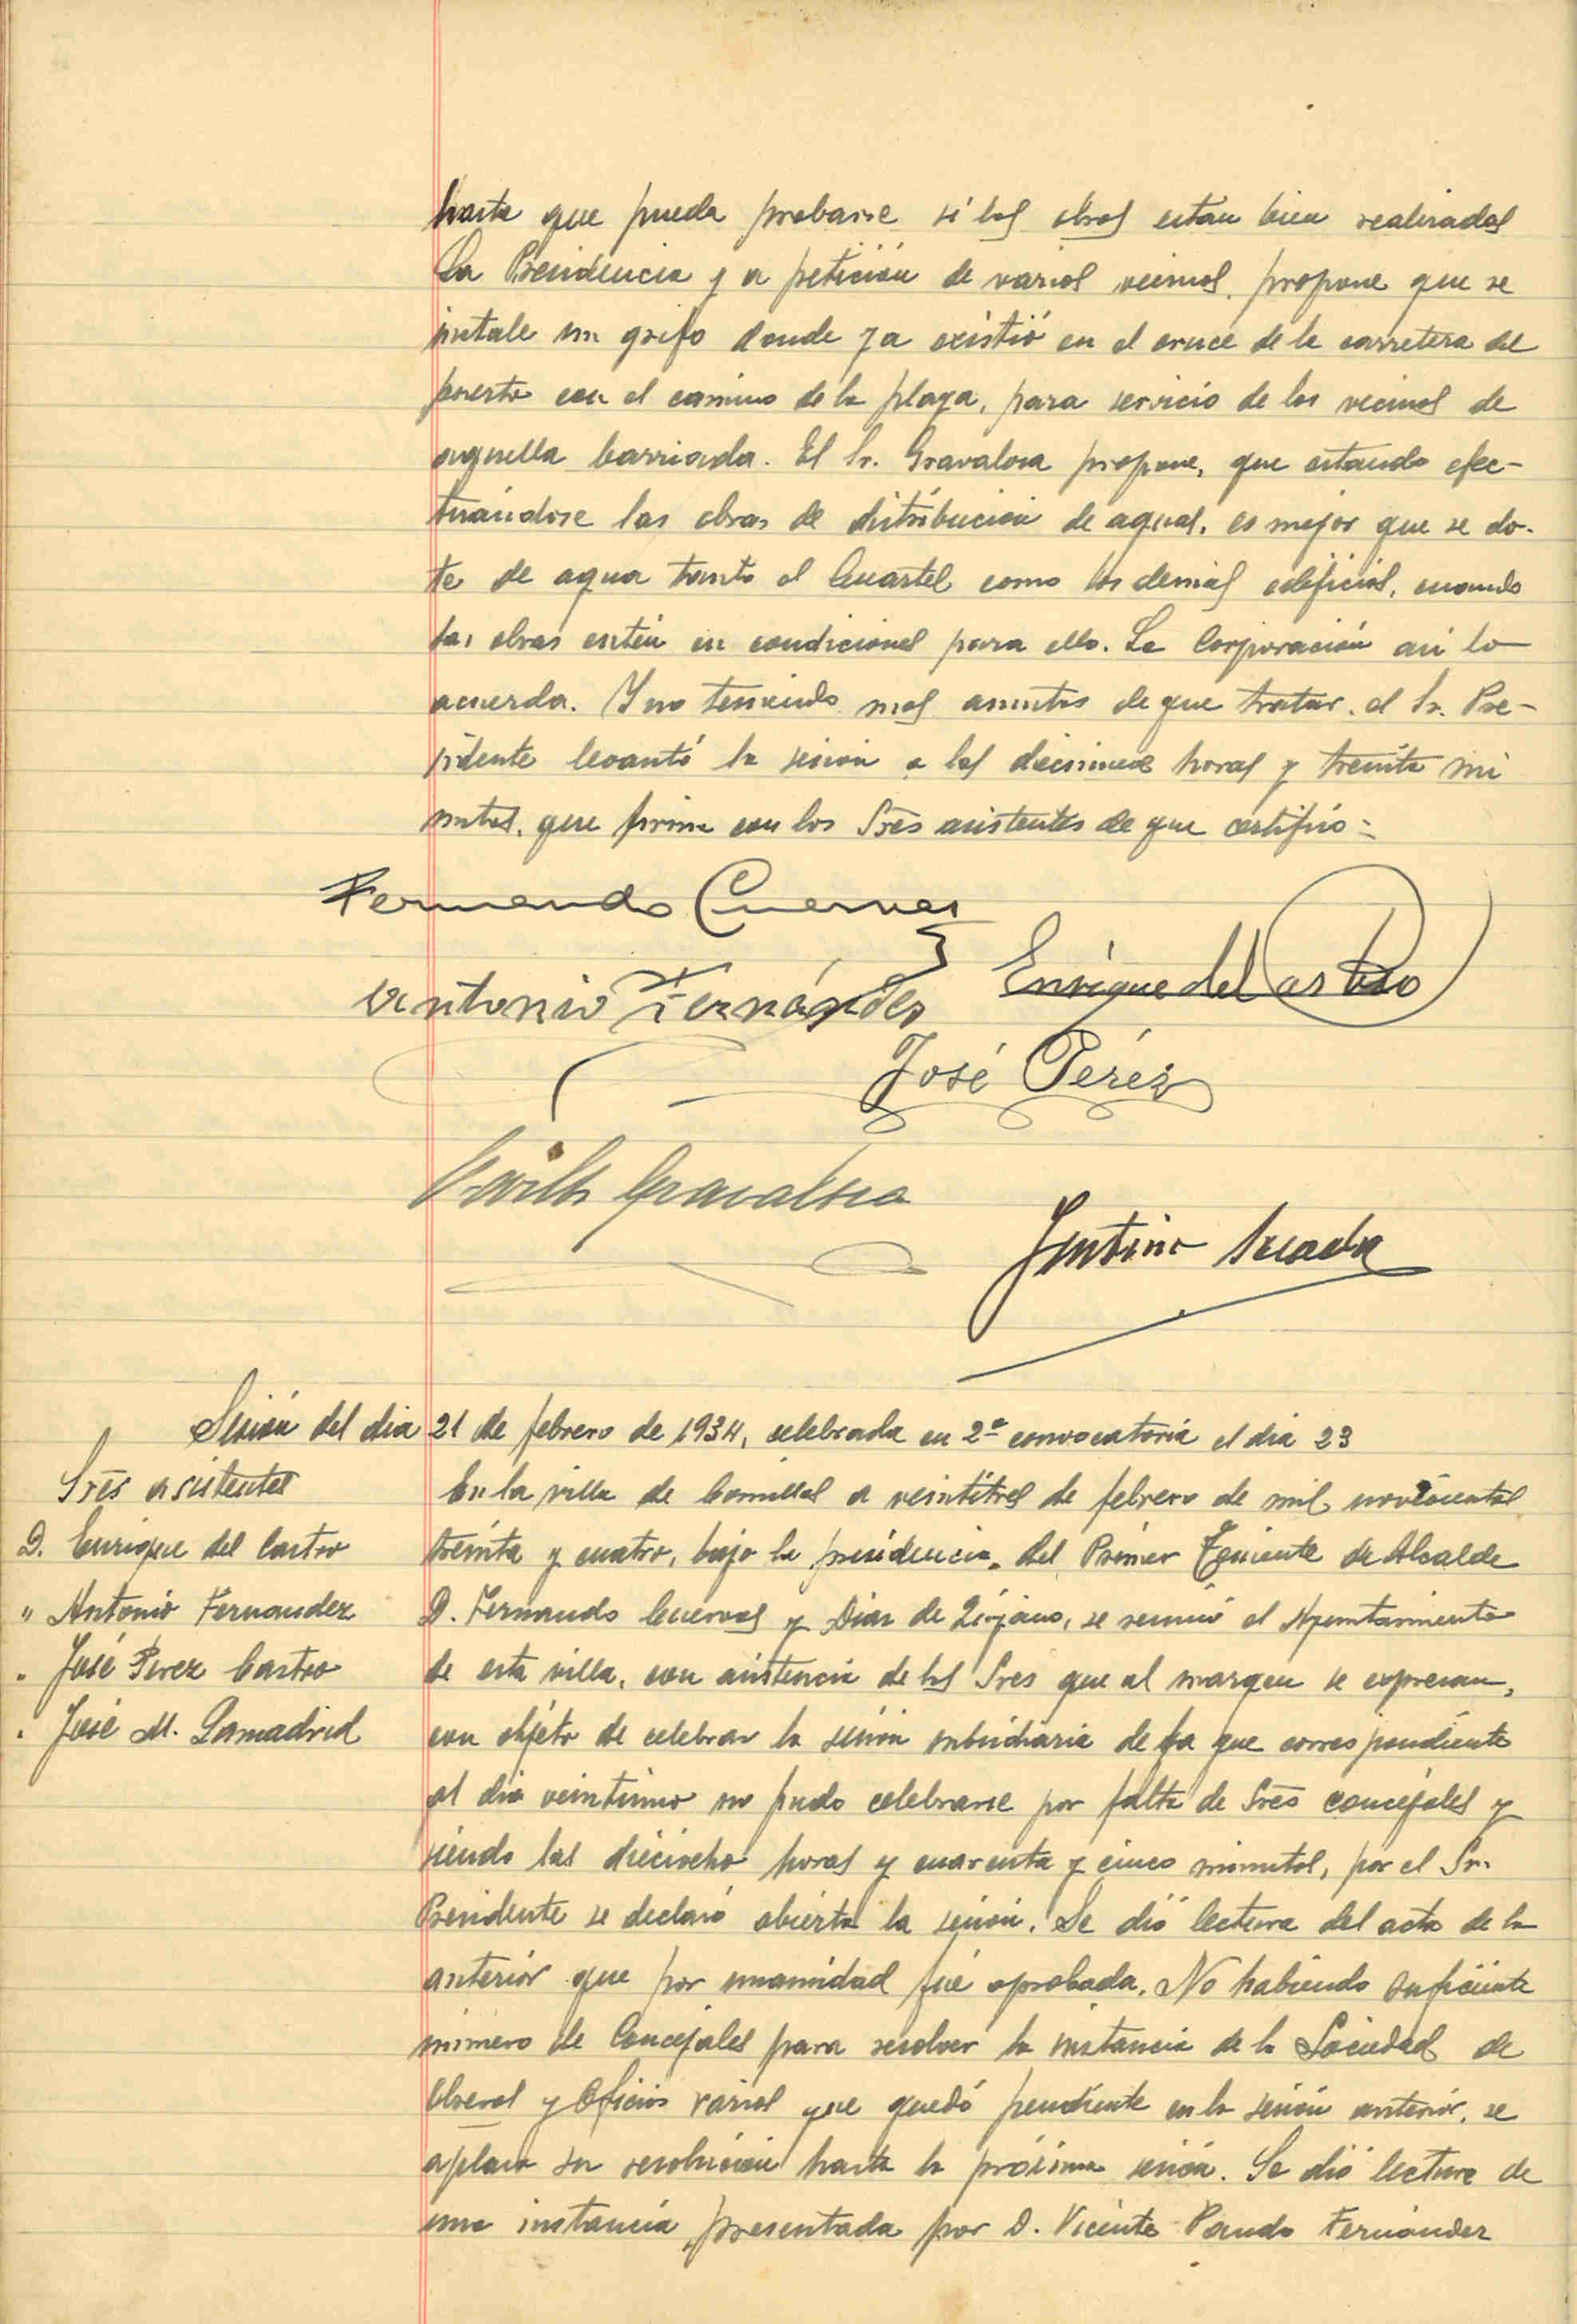 hasta que pueda probarse si las obras estan bien realizadas
La Presidencia y a petición de varios vecinos, propone que se
intale un grifo donde ya existió en el cruce de la carretera del
puerto con el camino de la playa, para servicio de los vecinos de
aquella barriada. El Sr. Gravalosa propone, que estando efec-
tuándose las obras de distribución de aguas, es mejor que se do-
te de agua tanto el Cuartel como los demas edificios, cuando
las obras estén en condiciones para ello. La Corporación asi lo
acuerda. Y no teniendo mas asuntos de que tratar, el Sr. Pre-
sidente levantó la sesión a las diecinueve horas y treinta mi
nutos, que firma con los Sres asistentes de que certifico =
Fernando Cuervas
Antonio Fernández Enrique del Castro
José Pérez
Gravalosa
Sesión del dia 21 de febrero de 1934, celebrada en 2ª convocatoria el dia 23
Sres asistentes
D. Enrique del Castro
" Antonio Fernandez
" José Perez Castro
" José M. Lamadrid
En la villa de Comillas a veintitres de febrero de mil novecientos
treinta y cuatro, bajo la presidencia del Primer Teniente de Alcalde
D. Fernando Cuervas y Diaz de Liójano, se reunió el Ayuntamiento
de esta villa, con asistencia de los Sres que al margen se expresan,
con objeto de celebrar la sesión subsidiaria de la que correspondiente
al dia veintiuno no pudo celebrarse por falta de Sres concejales y
siendo las dieciocho horas y cuarenta y cinco minutos, por el Sr.
Presidente se declaró abierta la sesión. Se dió lectura del acta de la
anterior que por unanimidad fué aprobada. No habiendo suficiente
número de Concejales para resolver la instancia de la Sociedad de
Obreros y Oficios varios que quedó pendiente en la sesión anterior, se
aplaza su resolución hasta la próxima sesión. Se dió lectura de
una instancia presentada por D. Vicente Pando Fernández